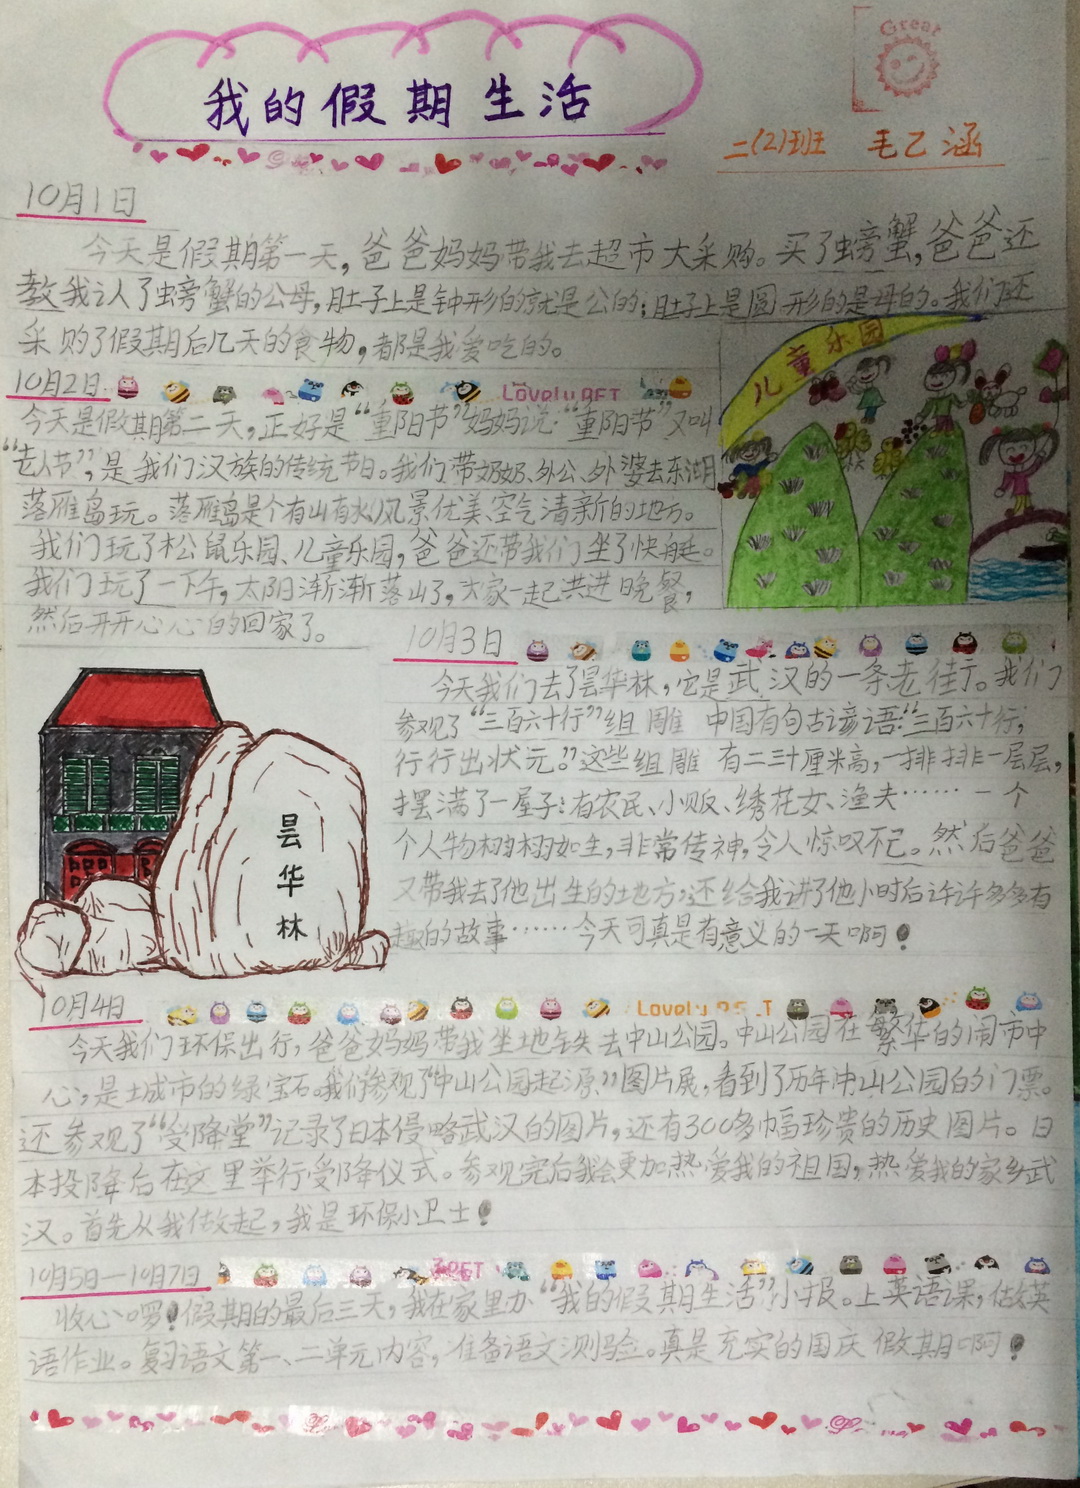 Great
我的假期生活
二(2)班 毛乙涵
10月1日
今天是假期第一天，爸爸妈妈带我去超市大采购。买了螃蟹，爸爸还
教我认了螃蟹的公母，肚子上是钟形的就是公的；肚子上是圆形的是母的。我们还
采购了假期后几天的食物，都是我爱吃的。
儿童乐园
10月2日
Lovely PET
今天是假期第二天，正好是“重阳节”妈妈说：“重阳节”又叫
“老人节”，是我们汉族的传统节日。我们带奶奶、外公、外婆去东湖
落雁岛玩。落雁岛是个有山有水风景优美、空气清新的地方。
我们玩了松鼠乐园、儿童乐园，爸爸还带我们坐了快艇。
我们玩了一下午，太阳渐渐落山了，大家一起共进晚餐，
然后开开心心的回家了。
10月3日
今天我们去了昙华林，它是武汉的一条老街。我们
参观了“三百六十行”组雕 中国有句古谚语：“三百六十行，
行行出状元。”这些组雕有二三十厘米高，一排排一层层，
摆满了一屋子：有农民、小贩、绣花女、渔夫……一个
个人物栩栩如生，非常传神，令人惊叹不已。然后爸爸
又带我去了他出生的地方，还给我讲了他小时后许许多多有
趣的故事……今天可真是有意义的一天啊！
昙华林
10月4日
Lovely PET
今天我们环保出行，爸爸妈妈带我坐地铁去中山公园。中山公园在繁华的闹市中
心，是城市的绿宝石。我们参观了“中山公园起源”图片展，看到了历年中山公园的门票。
还参观了“受降堂”记录了日本侵略武汉的图片，还有300多幅珍贵的历史图片。日
本投降后在这里举行受降仪式。参观完后我会更加热爱我的祖国，热爱我的家乡武
汉。首先从我做起，我是环保小卫士！
10月5日—10月7日
PET
收心啰！假期的最后三天，我在家里办“我的假期生活”小报。上英语课，做英
语作业。复习语文第一、二单元内容，准备语文测验。真是充实的国庆假期啊！